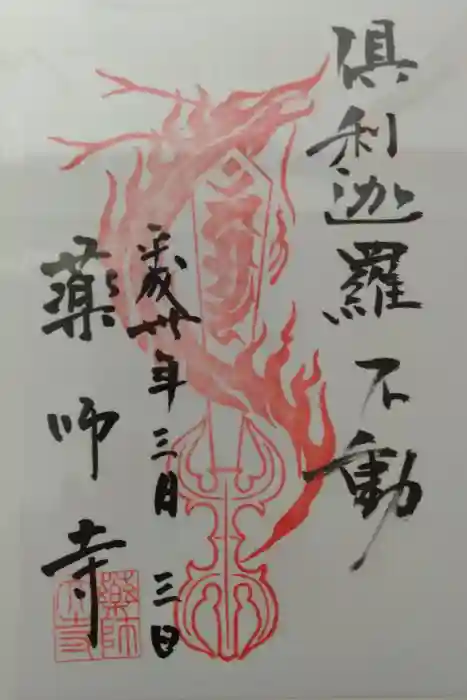 倶利迦羅不動
平成卅年三月三日
薬師寺
薬師